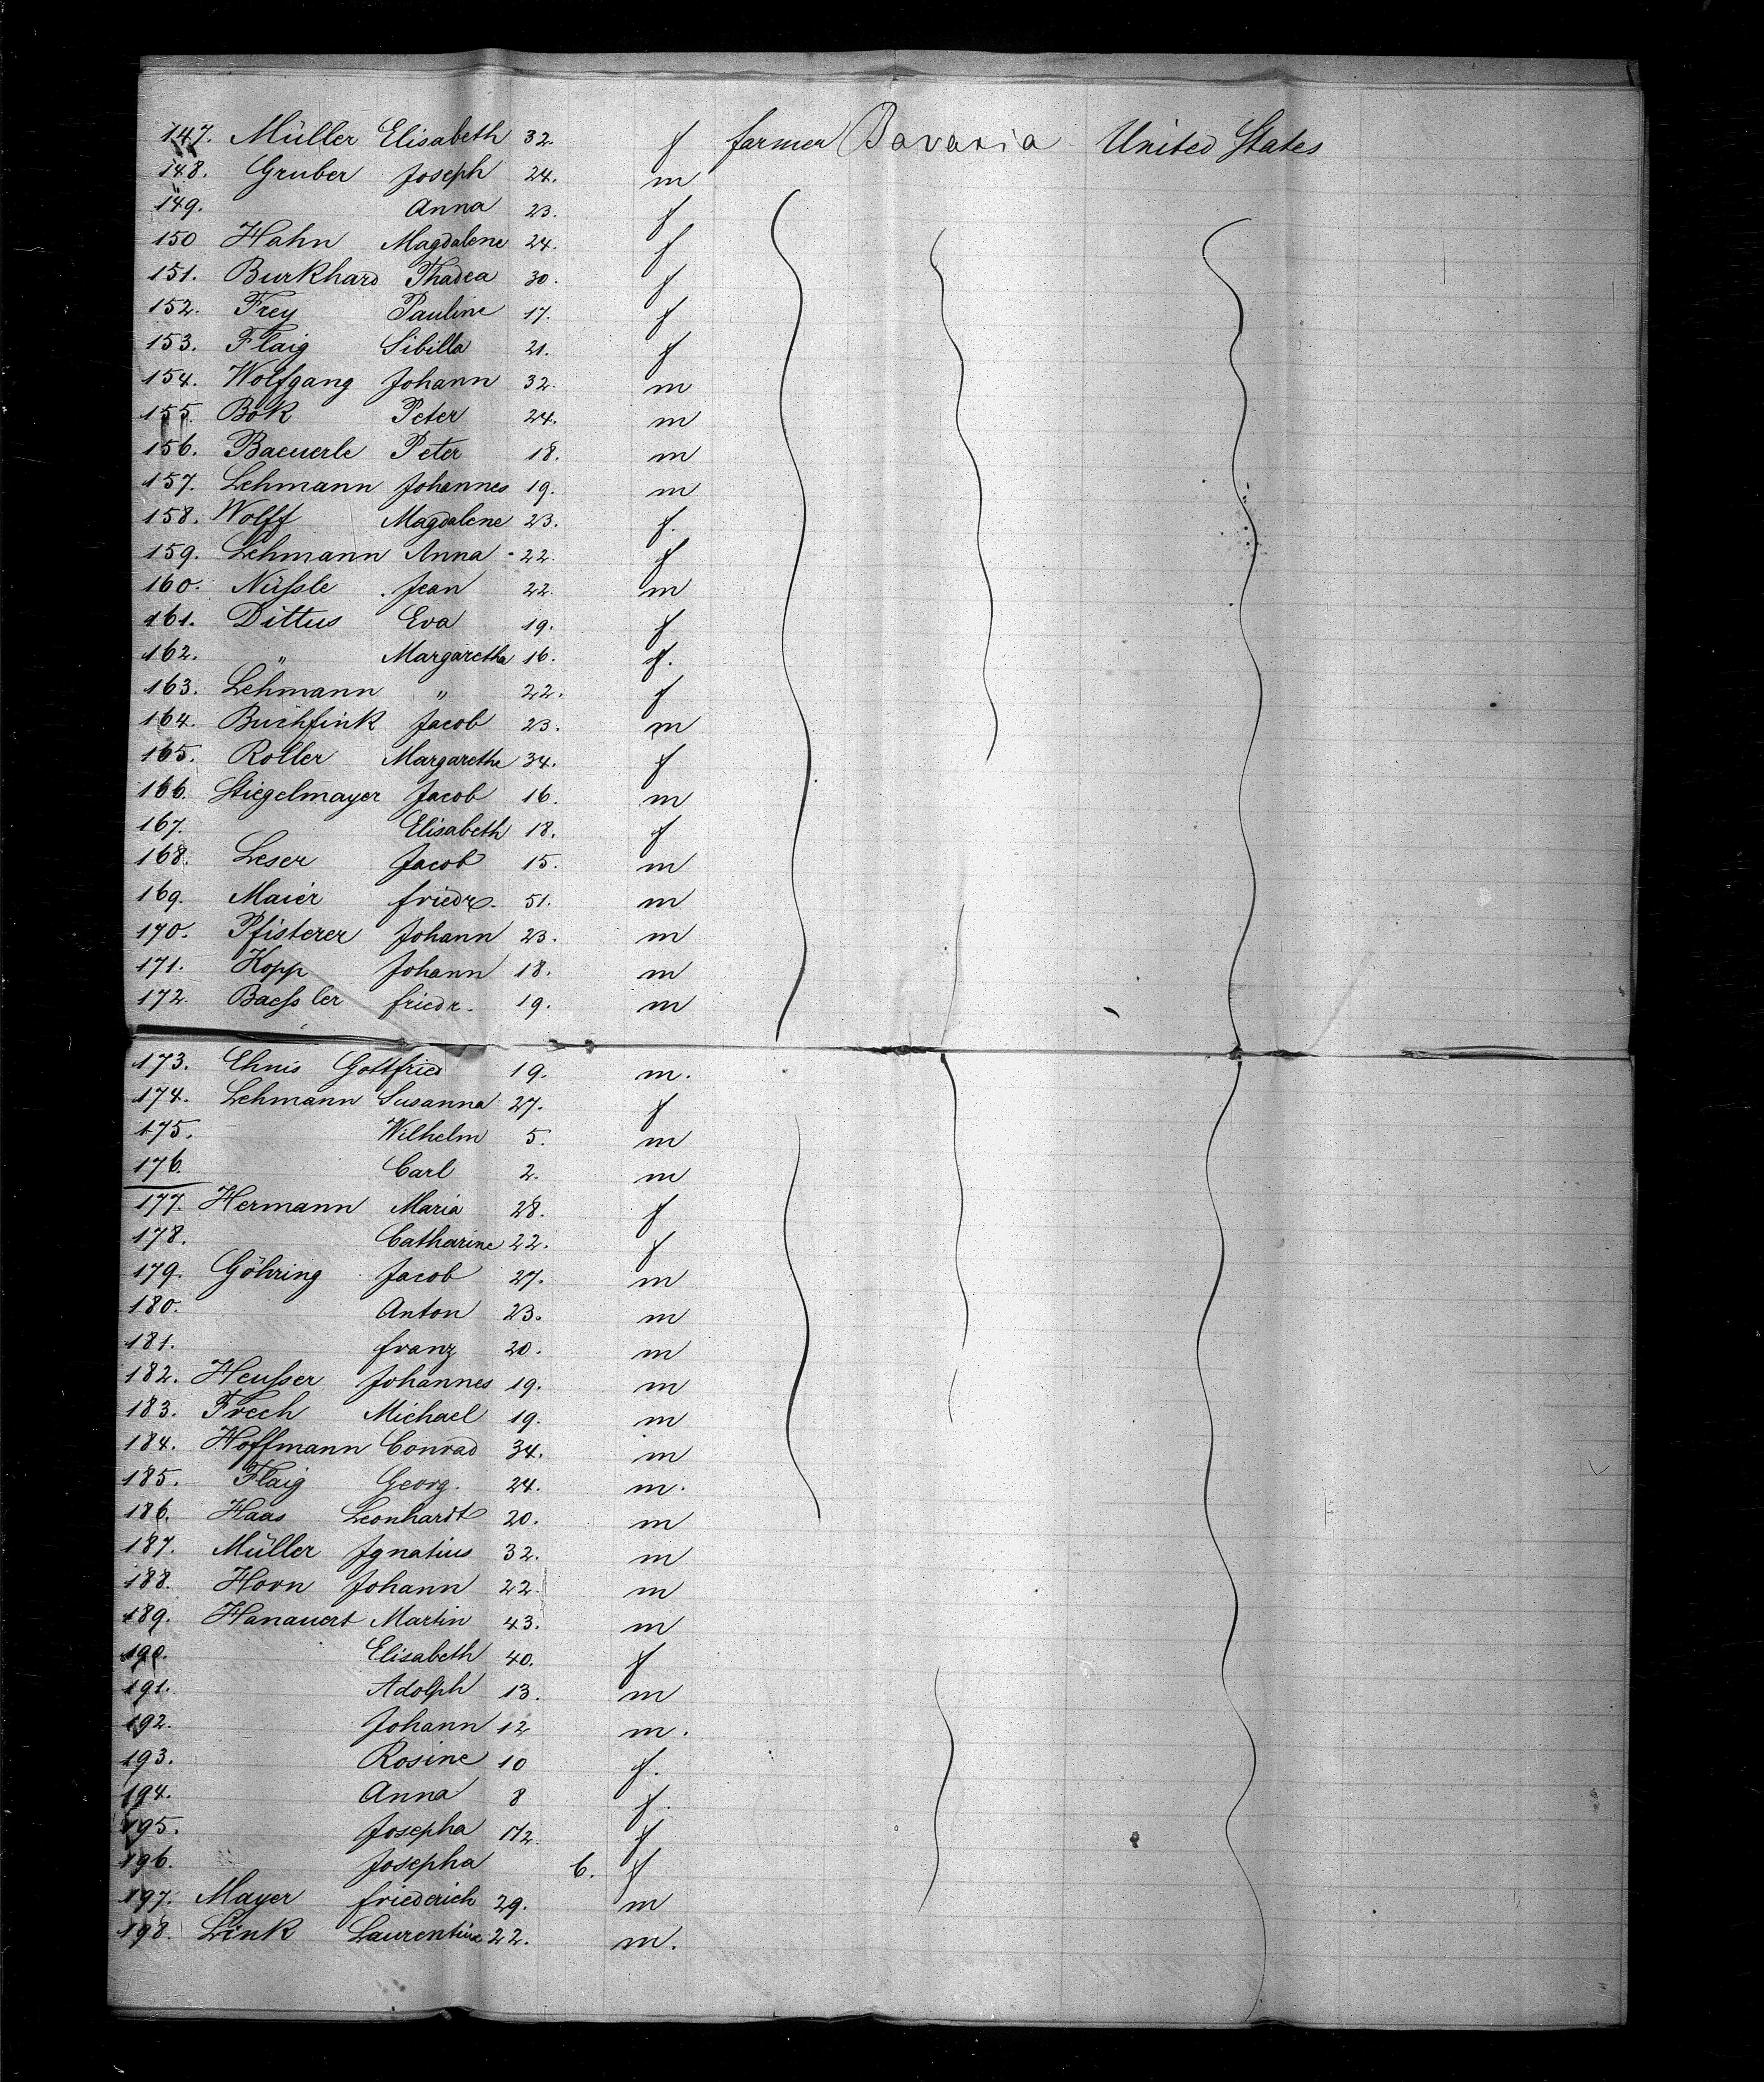 147. Müller Elisabeth 32. f farmer Bavaria United States
148. Gruber Joseph 24. m
149. Anna 23. f
150 Hahn Magdalene 24. f
151. Burkhard Thadea 30. f
152. Frey Pauline 17. f
153. Flaig Sibilla 21. f
154. Wolfgang Johann 32. m
155. Bok Peter 24. m
156. Baeuerle Peter 18. m
157. Lehmann Johannes 19. m
158. Wolff Magdalene 23. f.
159. Lehmann Anna 22. f
160. Nüfsle Jean 22. m
161. Dittus Eva 19. f
162. " Margaretha 16. f.
163. Lehmann " 22. f
164. Buchfink Jacob 23. m
165. Roller Margarethe 34. f
166. Stiegelmayer Jacob 16. m
167. Elisabeth 18. f
168. Leser Jacob 15. m
169. Maier friedr. 51. m
170. Pfisterer Johann 23. m
171. Kopp Johann 18. m
172. Baefsler friedr. 19. m
173. Ehnis Gottfried 19. m.
174. Lehmann Susanna 27. f
175. Wilhelm 5. m
176. Carl 2. m
177. Hermann Maria 28. f
178. Catharine 22. f
179. Göhring Jacob 27. m
180. Anton 23. m
181. franz 20. m
182. Heufser Johannes 19. m
183. Frech Michael 19. m
184. Hoffmann Conrad 34. m
185. Flaig Georg. 24. m.
186. Haas Leonhardt 20. m
187. Müller Ignatius 32. m
188. Horn Johann 22. m
189. Hanauert Martin 43. m
190. Elisabeth 40. f
191. Adolph 13. m
192. Johann 12 m.
193. Rosine 10 f.
194. Anna 8 f.
195. Josepha 1 1/2. f
196. Josepha 6. f
197. Mayer friederich 29. m
198. Link 22. m.